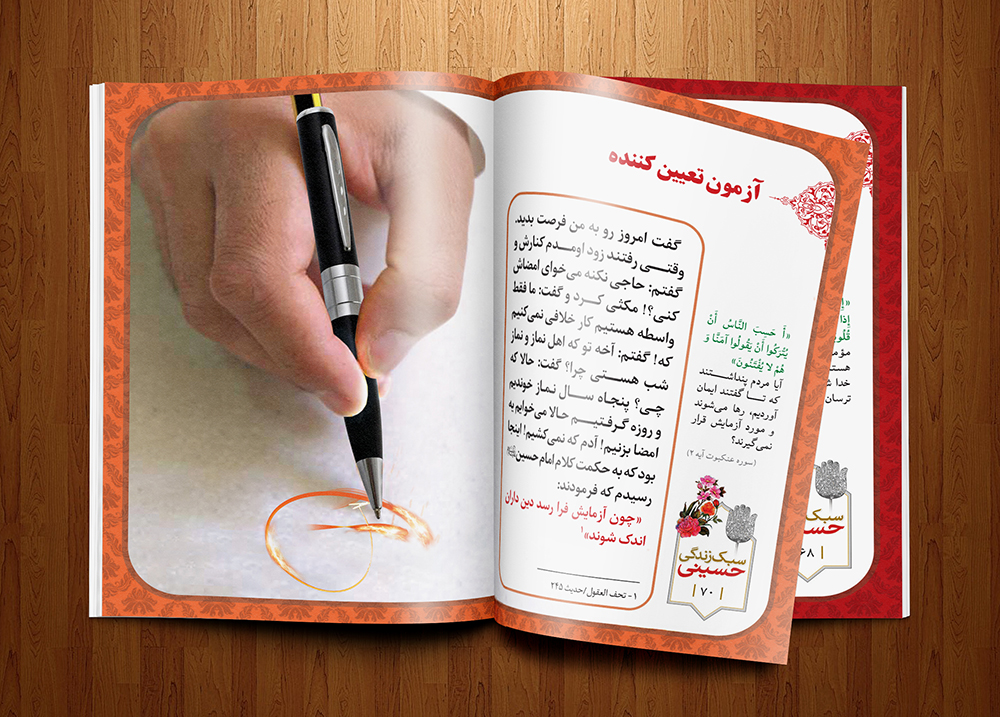 آزمون تعیین کننده
گفت امروز رو به من فرصت بدید.
وقتی رفتند زود اومدم کنارش و
گفتم: حاجی نکنه می‌خوای امضاش
کنی؟! مکثی کرد و گفت: ما فقط
واسطه هستیم کار خلافی نمی‌کنیم
که! گفتم: آخه تو که اهل نماز و نماز
شب هستی چرا؟ گفت: حالا که
چی؟ پنجاه سال نماز خوندیم
و روزه گرفتیم حالا می‌خوایم یه
امضا بزنیم! آدم که نمی‌کشیم! اینجا
بود که به حکمت کلام امام حسین
رسیدم که فرمودند:
«چون آزمایش فرا رسد دین داران
اندک شوند»۱
۱- تحف العقول/حدیث ۲۴۵
«أَ حَسِبَ النَّاسُ أَنْ
يُتْرَكُوا أَنْ يَقُولُوا آمَنَّا وَ
هُمْ لا يُفْتَنُونَ»
آیا مردم پنداشتند
که تا گفتند ایمان
آوردیم، رها می‌شوند
و مورد آزمایش قرار
نمی‌گیرند؟
(سوره عنکبوت آیه ۲)
سبک زندگی
حسینی
|۷۰|
إِذا
خدا
ترسان
سبک
۶۸|